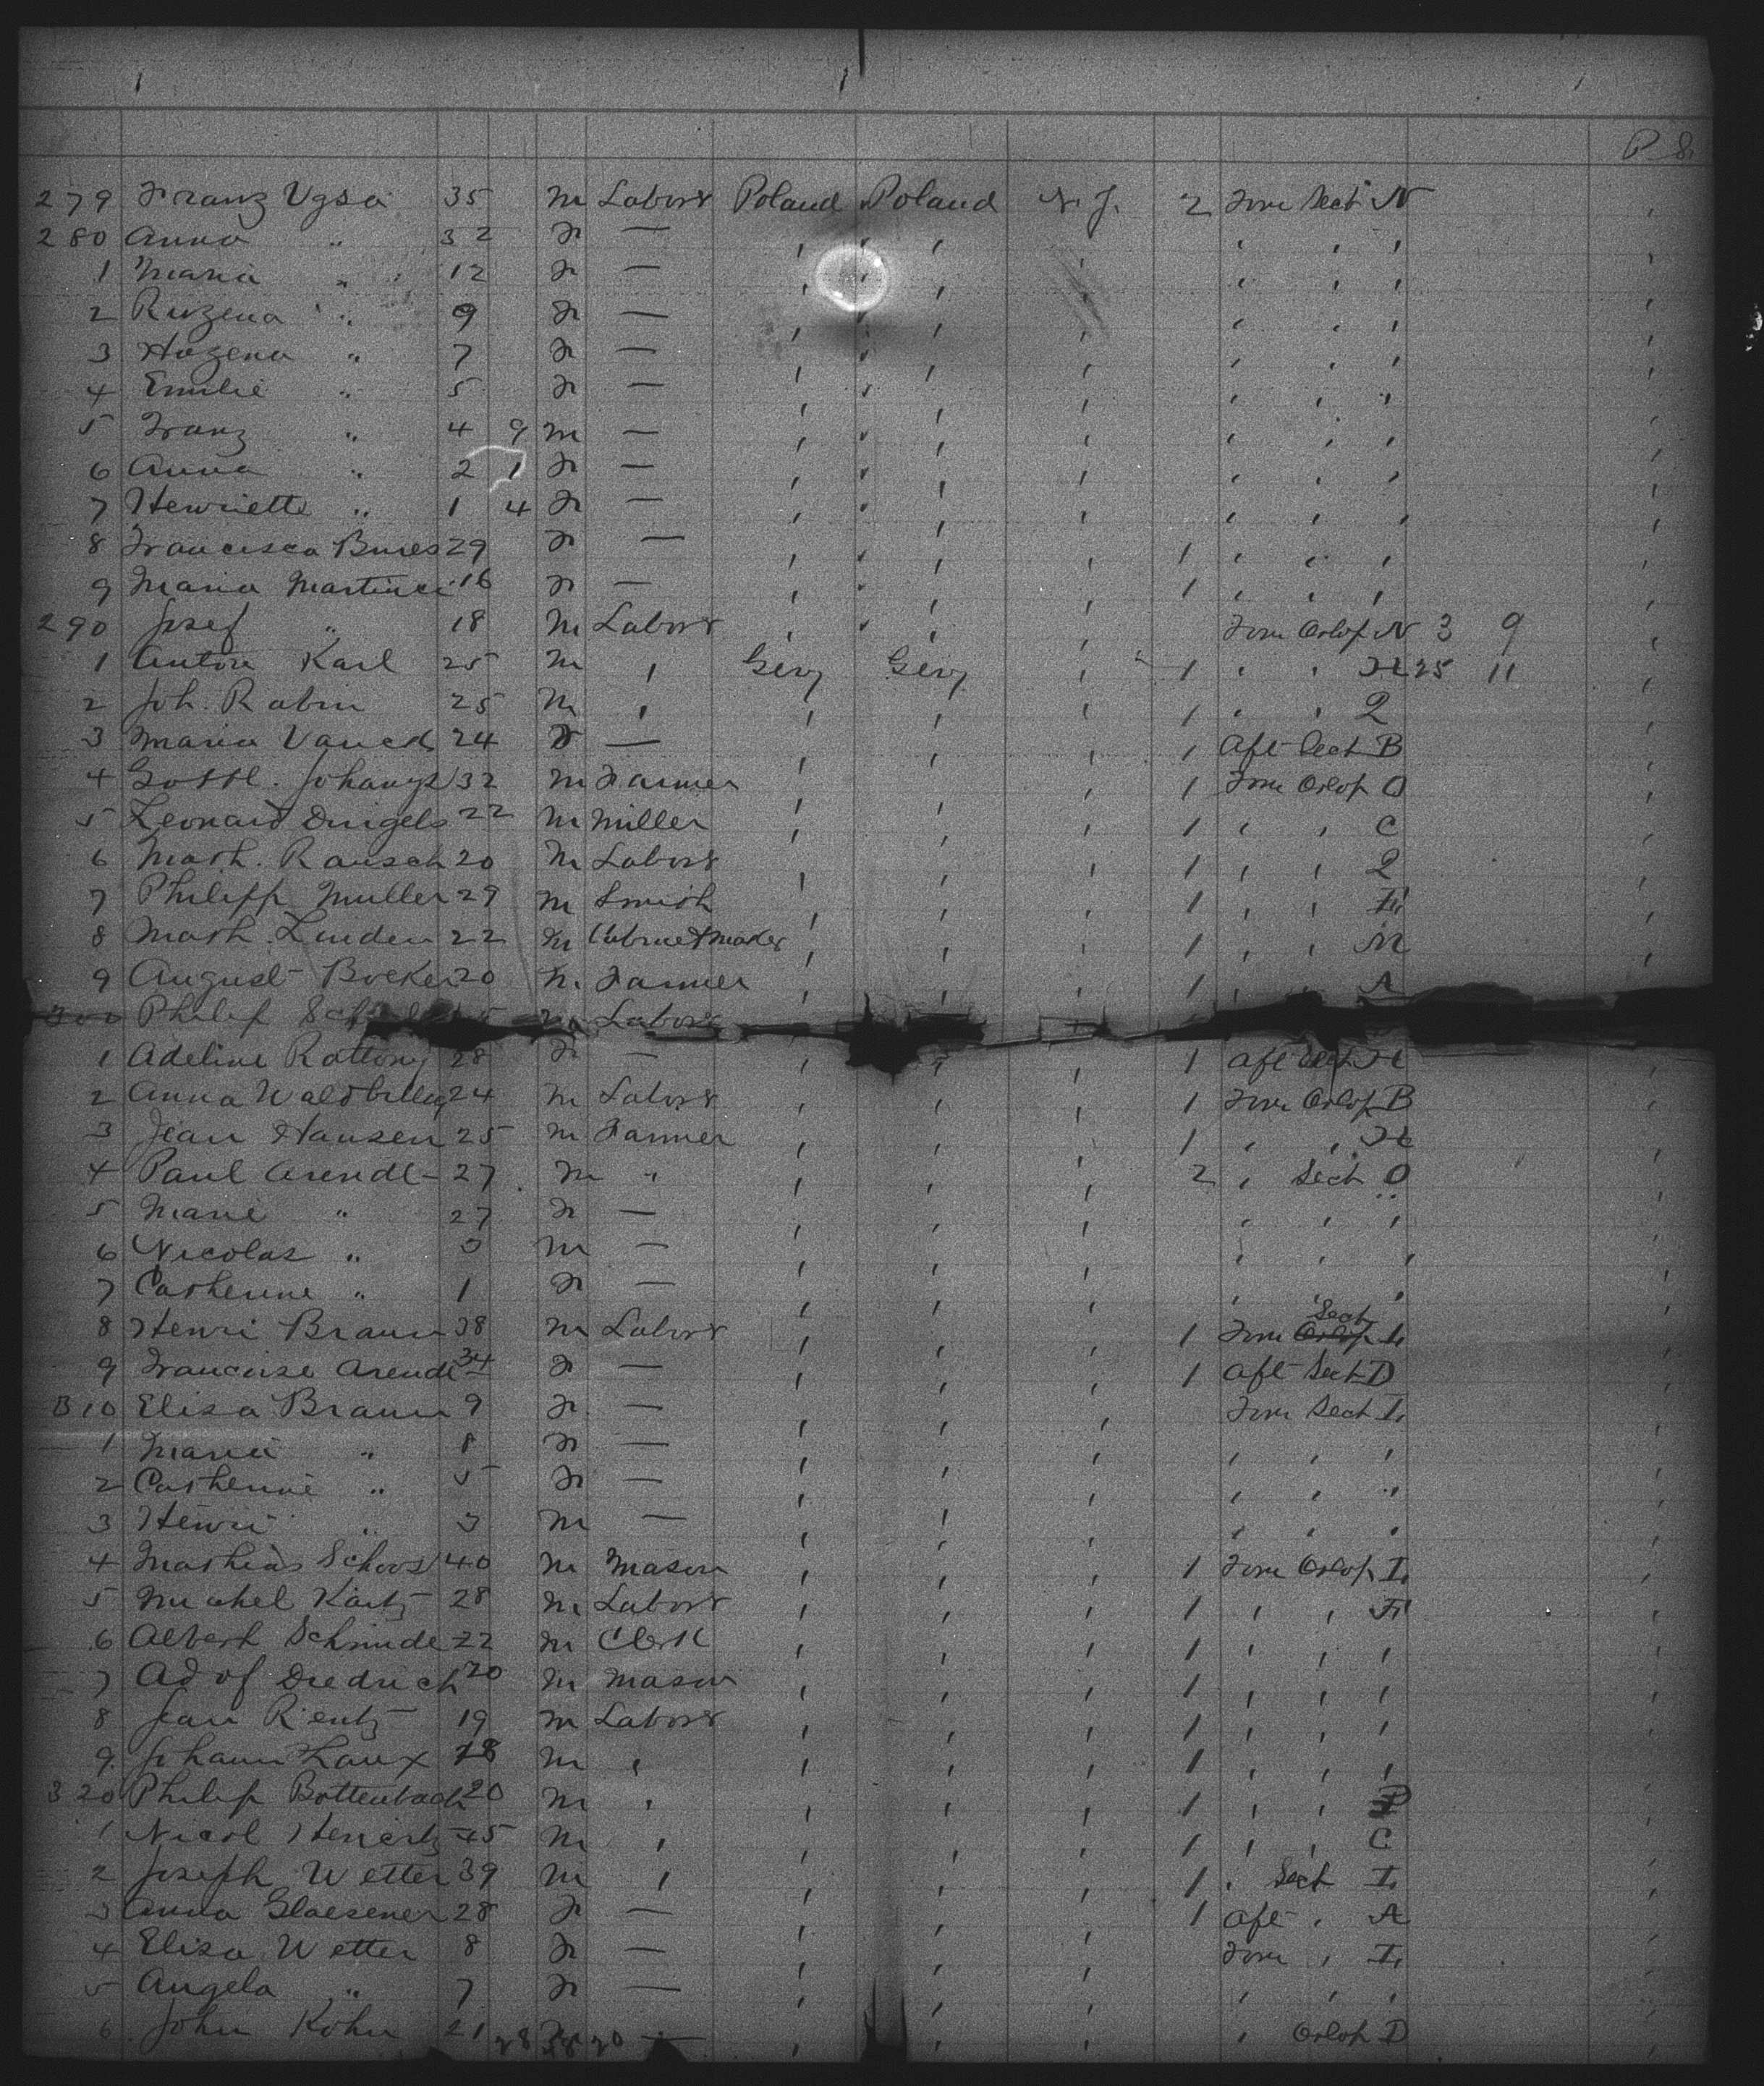 P 8.
279 Franz Vgsa 35 M Labor Poland Poland N. J. 2 Forw Sect N
280 Anna " 32 F — , , , , , ,
1 Maria " 12 F — , , , , , ,
2 Ruzena " 9 F — , , , , , ,
3 Hazena " 7 F — , , , , , ,
4 Emilie " 5 F — , , , , , ,
5 Franz " 4 9 M — , , , , , ,
6 Anna " 2 1 F — , , , , , ,
7 Henriette " 1 4 F — , , , , , ,
8 Francisca Bures 29 F — , , , 1 , , ,
9 Maria Martinec 16 F — , , , 1 , , ,
290 Josef " 18 M Labor , , , Forw Orlop N 3 9
1 Anton Karl 25 M , Gery Gery , 1 , , H 25 11
2 Joh. Rabin 25 M , , , , 1 , , Q
3 Maria Vanek 24 F — , , , 1 Aft Sect B
4 Gottl. 32 M Farmer , , , 1 Forw Orlop O
5 Leonard Dingels 22 M Miller , , , 1 , , C
6 Math. Rausch 20 M Labor , , , 1 , , Q
7 Philipp Muller 29 M Smith , , , 1 , ,
8 Math. Linden 22 M Cabinetmaker , , , 1 , , M
9 August Bocker 20 M Farmer , , , 1 , , A
300 Philip M Labor
1 Adeline 28 F — , , , 1 Aft Sect H
2 Anna Waldbillig 24 M Labor , , , 1 Forw Orlop B
3 Jean Hansen 25 M Farmer , , , 1 , , H
4 Paul Arendt 27 M " , , , 2 , Sect O
5 Marie " 27 F — , , , , , "
6 Nicolas " 3 M — , , , , , ,
7 Catherine " 1 F — , , , , , ,
8 Henri Braun 38 M Labor , , , 1 Forw Sect I
9 Francoise Arendt 34 F — , , , 1 Aft Sect D
310 Elisa Braun 9 F — , , , Forw Sect I
1 Marie " 8 F — , , , , , ,
2 Catherine " 5 F — , , , , , "
3 Henri " 3 M — , , , , , ,
4 Mathias Schoos 40 M Mason , , , 1 Forw Orlop I
5 Michel 28 M Labor , , , 1 , , F
6 Albert 22 M Clerk , , , 1 , , ,
7 Adolf Diedrich 20 M Mason , , , 1 , , ,
8 Jean Rientz 19 M Labor , , , 1 , , ,
9 Johann Laux 28 M , , , , 1 , , ,
320 Philip Bottenbach 20 M , , , , 1 , ,
1 Nicol 45 M , , , , 1 , , C
2 Joseph Wetter 39 M , , , , 1 , Sect I
3 Anna Glaesener 28 F — , , , 1 Aft , A
4 Elisa Wetter 8 F — , , , Forw , I
5 Angela " 7 F — , , , , , ,
6 John Kohn 21 — , , , , Orlop D